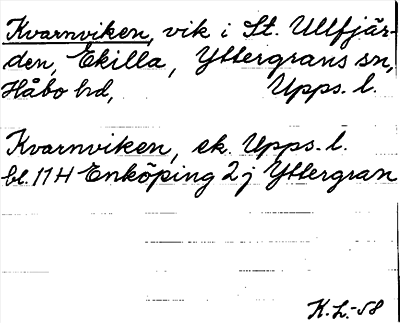 Kvarnviken, vik i St. Ullfjär-
den, Ekilla, Yttergrans sn,
Håbo hd, Upps. l.
Kvarnviken, ek. Upps. l.
bl. 11H Enköping 2j Yttergran
K.L.-58